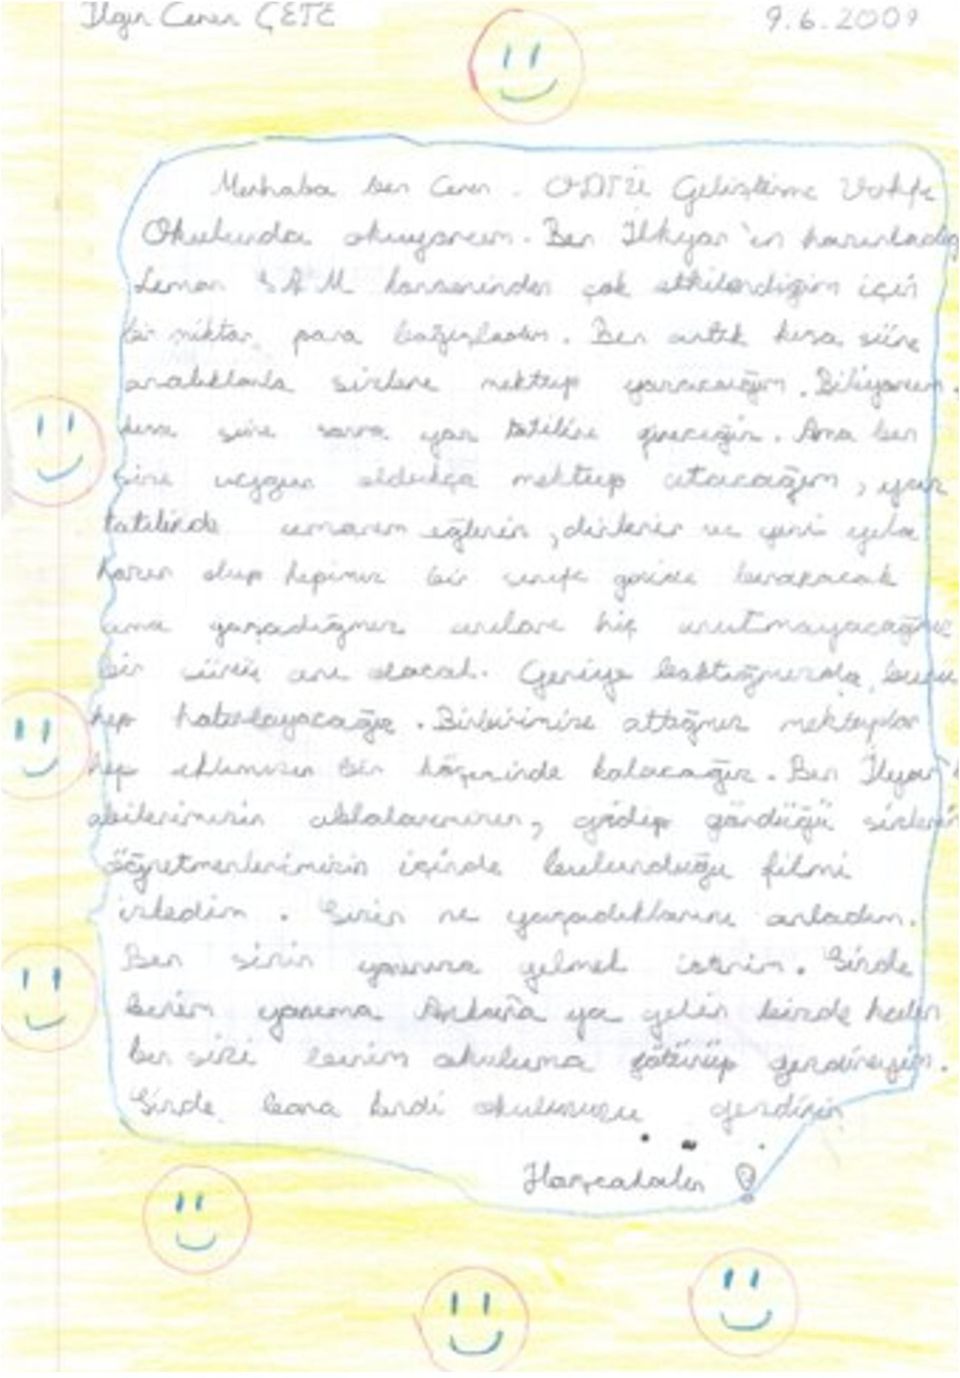 Ilgın Ceren ÇETE 9.6.2009
Merhaba ben Ceren. ODTÜ Geliştirme Vakfı
Okulunda okuyorum. Ben İlkyar'ın hazırladığ
Leman SAM konserinden çok etkilendiğim için
bir miktar para bağışladım. Ben artık kısa süre
aralıklarla sizlere mektup yazacağım. Biliyorum.
kısa süre sonra yaz tatiline gireceğiz. Ama ben
size uygun oldukça mektup atacağım, yaz
tatilinde umarım eğlenir, dinlenir ve yeni yıla
hazır olup hepimiz bir sınıfı geride bırakacak
ama yaşadığımız anıları hiç unutmayacağımız
bir sürü anı olacak. Geriye baktığımızda bunu
hep hatırlayacağız. Birbirimize attığımız mektuplar
hep aklımızın bir köşesinde kalacağız. Ben İlyar'
abilerimizin ablalarımızın, gidip gördüğü sizlerin
öğretmenlerimizin içinde bulunduğu filmi
izledim. Sizin ne yaşadıklarını anladım.
Ben sizin yanınıza gelmek isterim. Sizde
benim yanıma Ankara ya gelin bizde kalın
ben sizi benim okuluma götürüp gezdireyim.
Sizde bana kendi okulunuzu gezdirin
Hoşçakalın !